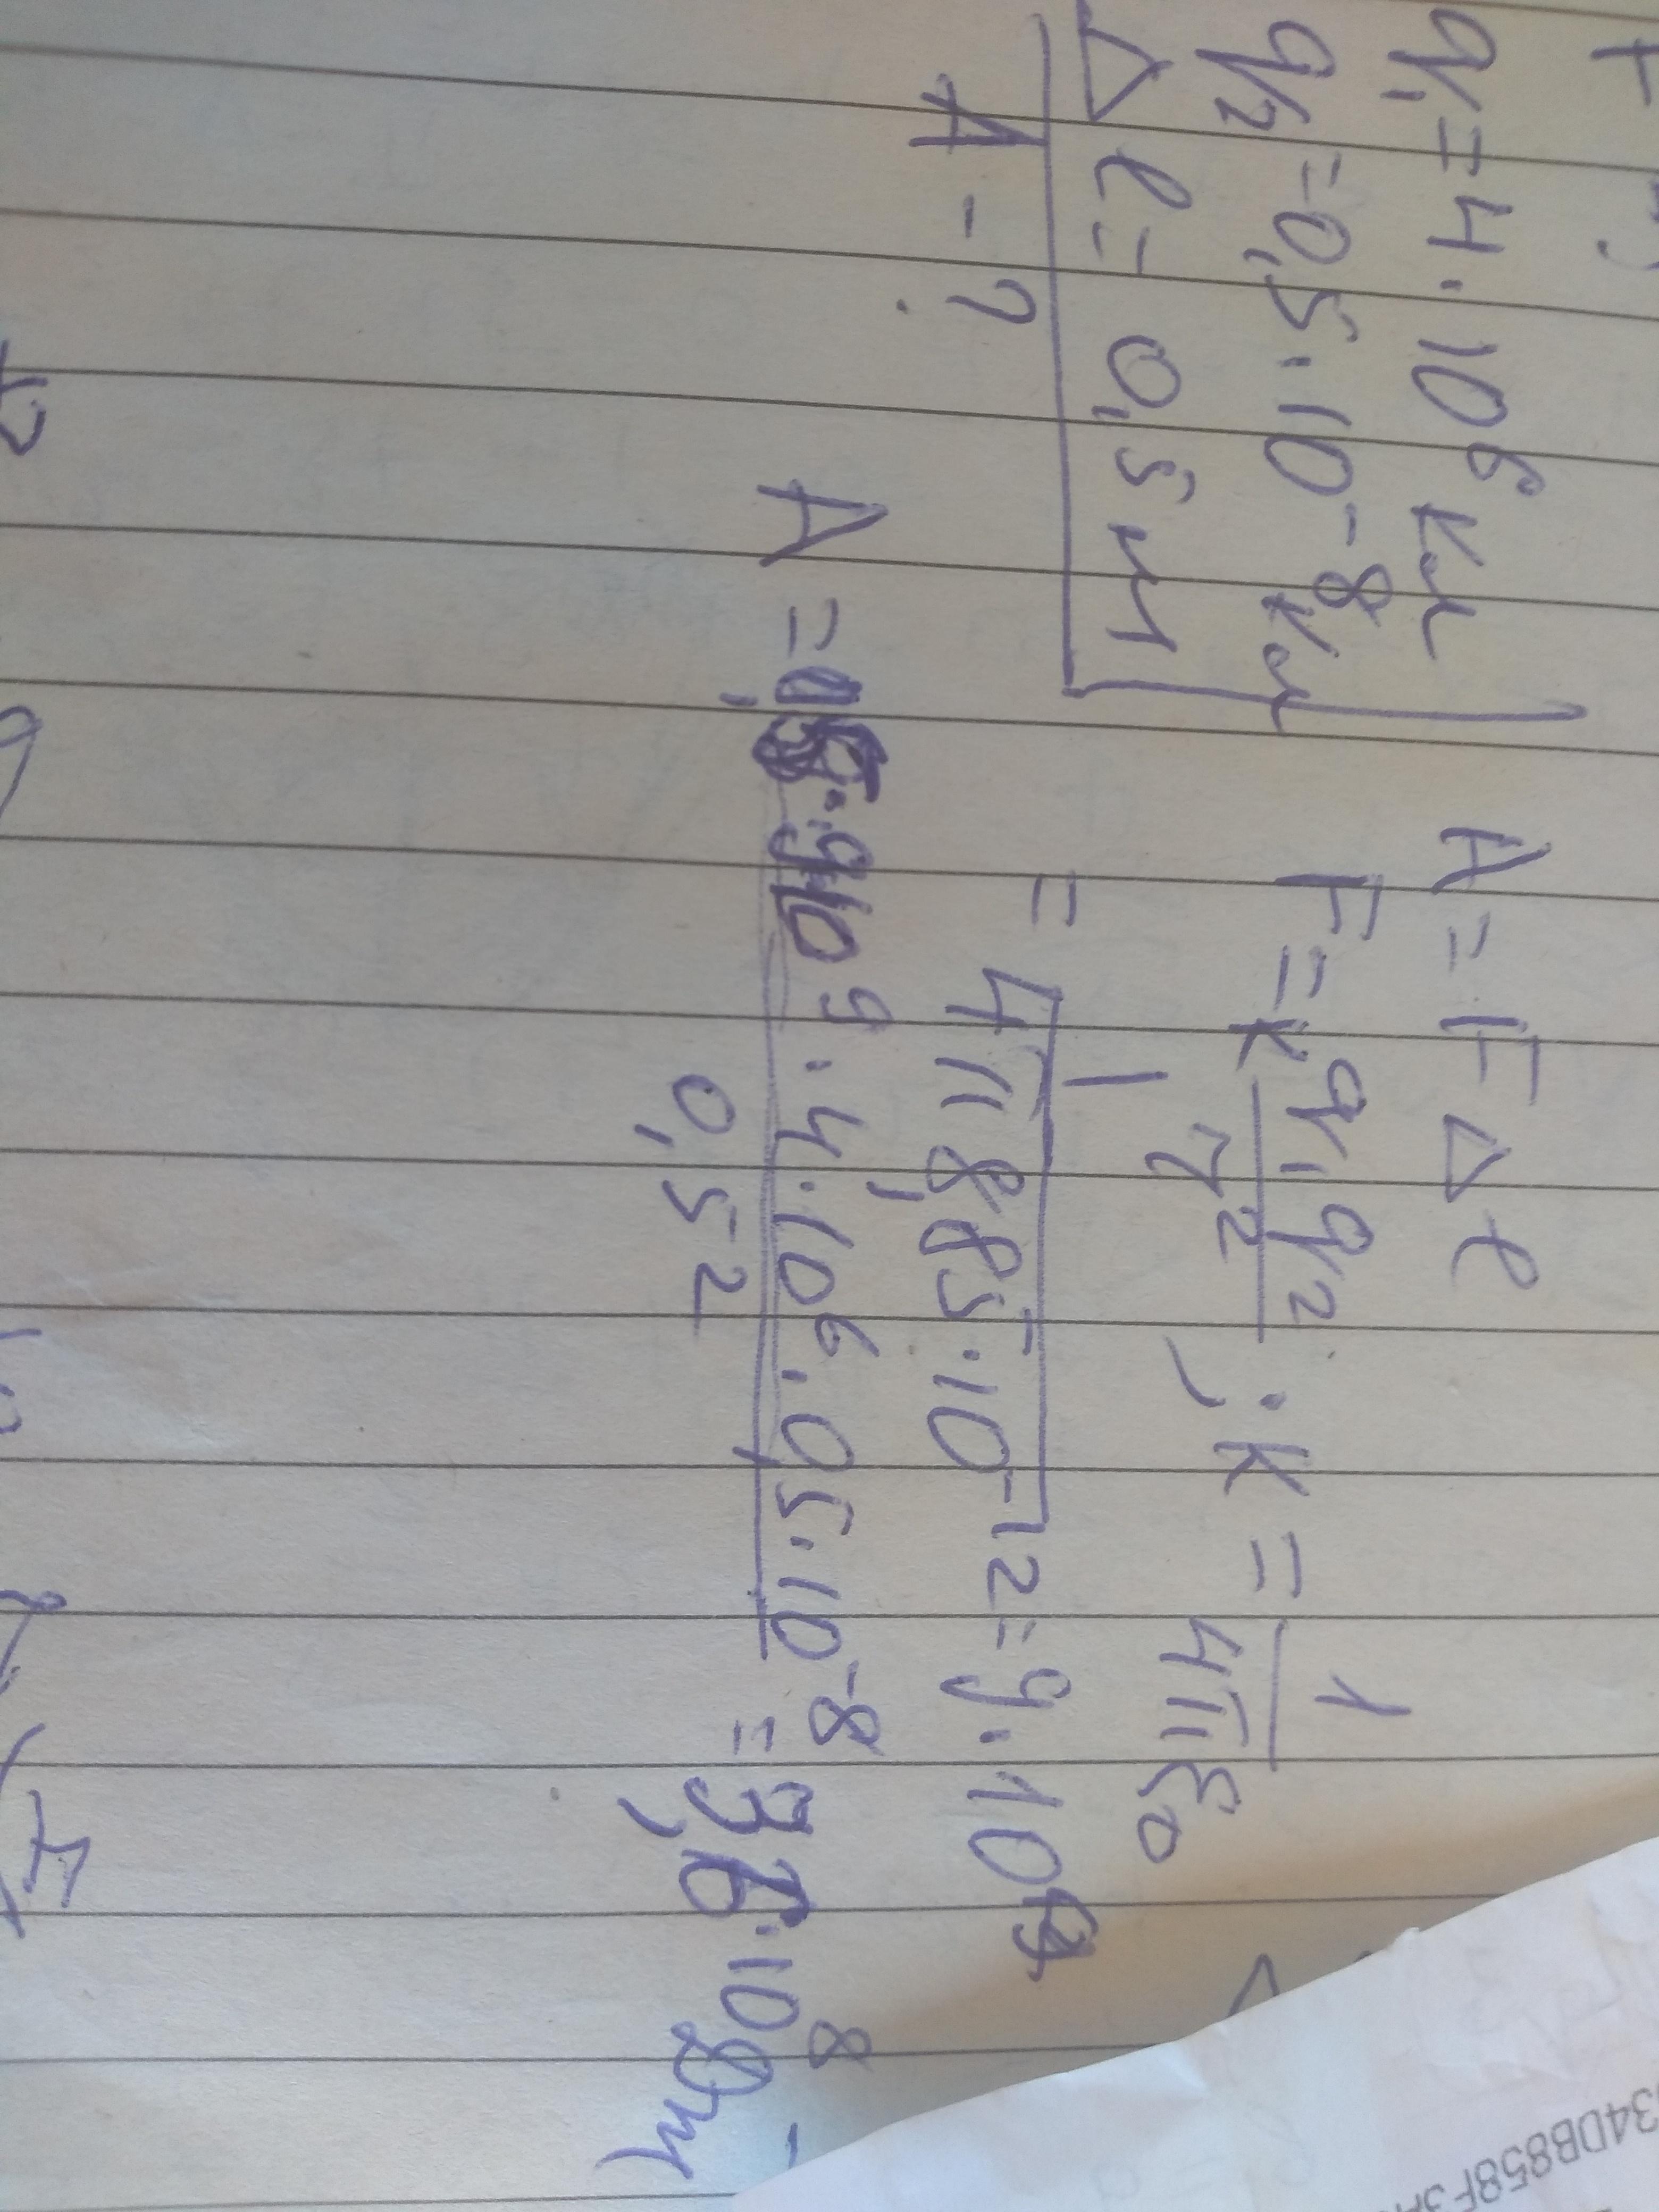 q₁ = 4 · 10⁶ Кл
q₂ = 0,5 · 10⁻⁸ Кл
Δl = 0,5 м
A - ?
A = FΔl
F = k q₁q₂ / r² ; k = 1 / 4πε₀
= 1 / 4π 8,85 · 10⁻¹² = 9 · 10⁹
· 4 · 10⁶ · 0,5 · 10⁻⁸ / 0,5² = 3,6 · 10⁸ Дж
34DB858F